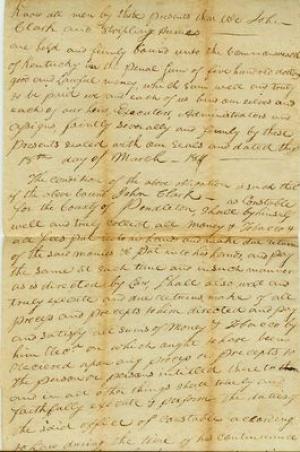 Know all men by these presents that We John
Clark and Stripling
are held and firmly bound unto the Commonwealth
of Kentucky in the Penal Sum of five hundred dollars
good and lawful money, which sum well and truly
to be paid we and each of us bind our selves and
each of our heirs, Executors, Administrators and
assigns, jointly severally and firmly by these
presents sealed with our seals and dated this
18th day of March
The condition of the above obligation is such that
if the above bound John Clark as Constable
for the County of Pendleton shall by himself
well and truly collect all Money & Tobacco &
all fees put into his hands and make due return
of the said monies & put into his hands, and pay
the same at such time and in such manner
as is directed by law, shall also well and
truly execute and due returns make of all
process and precepts to him directed and pay
and satisfy all sums of Money & Tobacco by
him Rec'd or which ought to have been
Received upon any process or precepts to
the person or persons intitled there to
and in all other things shall truly and
faithfully execute & perform the duties of
the said office of constable according
to Law during the time of his continuance